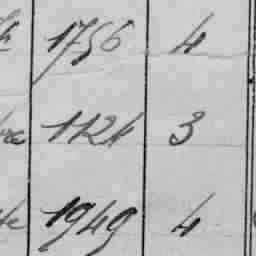 1756 4
1124 3
1949 4